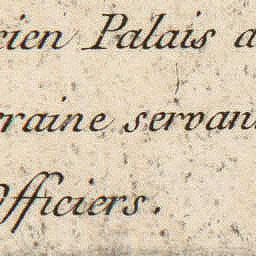 cien Palais d
raine servant
Officiers.